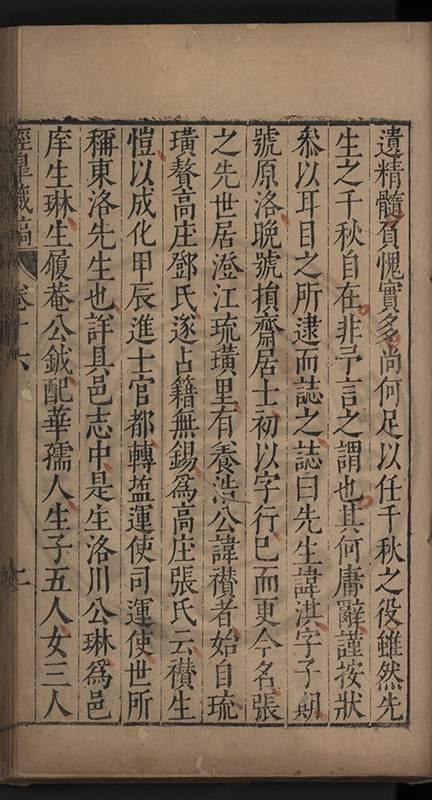 遺精髓負愧實多尚何足以任千秋之役雖然先
生之千秋自在非予言之謂也其何庸辭謹按狀
叅以耳目之所逮而誌之誌曰先生諱洪字子期
號原洛晚號損齋居士初以字行巳而更今名張
之先世居澄江琉璜里有養浩公諱禶者始自琉
璜贅高庄鄧氏遂占籍無錫爲高庄張氏云禶生
愷以成化甲辰進士官都轉塩運使司運使世所
稱東洛先生也詳具邑志中是生洛川公琳爲邑
庠生琳生履菴公鉞配華孺人生子五人女三人
涇臯藏稿 卷十六